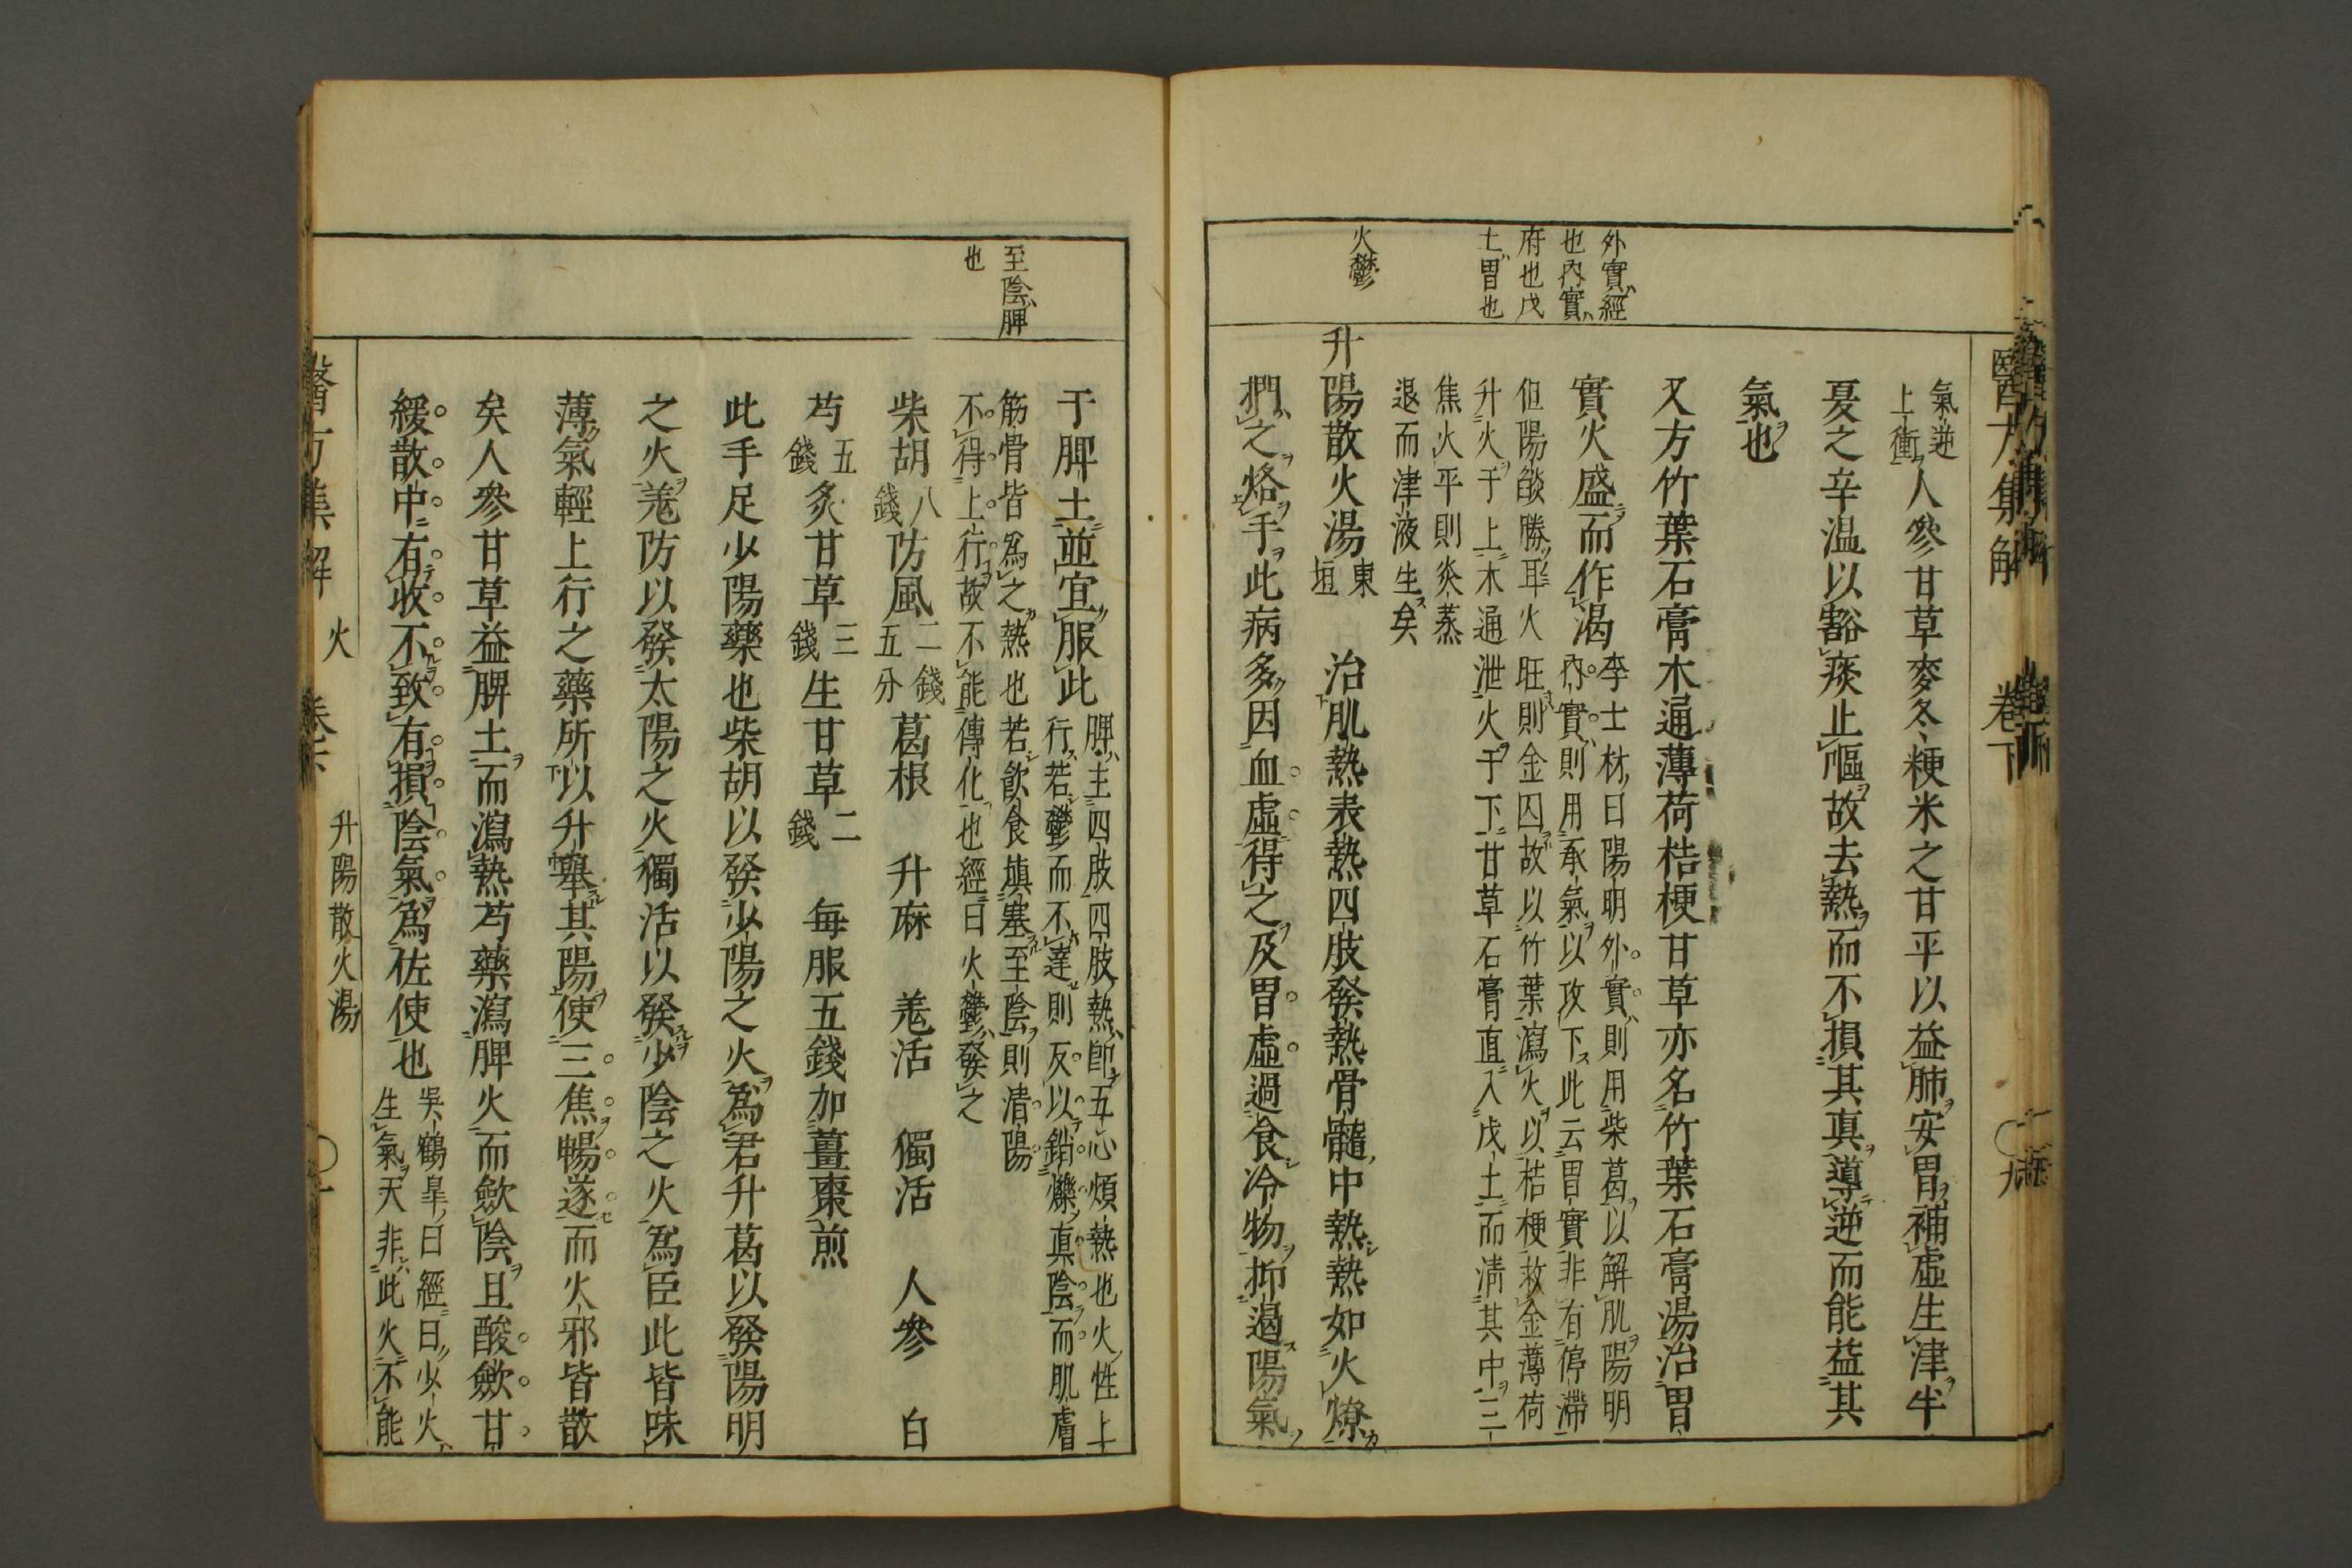 醫方集解 卷下 ○九
外實經
也內實
府也戊
土胃也
火鬱
氣逆
上衝
人參甘草麥冬粳米之甘平以益肺安胃補虛生津半
夏之辛温以豁痰止嘔故去熱而不損其真導逆而能益其
氣也
又方竹葉石膏木通薄荷桔梗甘草亦名竹葉石膏湯治胃
實火盛而作渴
李士材曰陽明外實則用柴葛以解肌陽明
內實則用承氣以攻下此云胃實非有停滯
但陽燄勝耳火旺則金囚故以竹葉瀉火以桔梗救金薄荷
升火于上木通泄火于下甘草石膏直入戊土而清其中三
焦火平則炎蒸
退而津液生矣
升陽散火湯
東
垣
治肌熱表熱四肢發熱骨髓中熱熱如火燎
捫之烙手此病多因血虛得之及胃虛過食冷物抑遏陽氣
至陰脾
也
于脾土並宜服此
脾主四肢四肢熱卽五心煩熱也火性上
行若鬱而不達則反以銷爍真陰而肌膚
筋骨皆爲之熱也若飲食填塞至陰則清陽
不得上行故不能傳化也經曰火鬱發之
柴胡
八
錢
防風
二錢
五分
葛根 升麻 羌活 獨活 人參 白
芍
五
錢
炙甘草
三
錢
生甘草
二
錢
每服五錢加薑棗煎
此手足少陽藥也柴胡以發少陽之火爲君升葛以發陽明
之火羌防以發太陽之火獨活以發少陰之火爲臣此皆味
薄氣輕上行之藥所以升舉其陽使三焦暢遂而火邪皆散
矣人參甘草益脾土而瀉熱芍藥瀉脾火而斂陰且酸斂甘
緩散中有收不致有損陰氣爲佐使也
吳鶴皐曰經曰少火
生氣天非此火不能
醫方集解 火 升陽散火湯